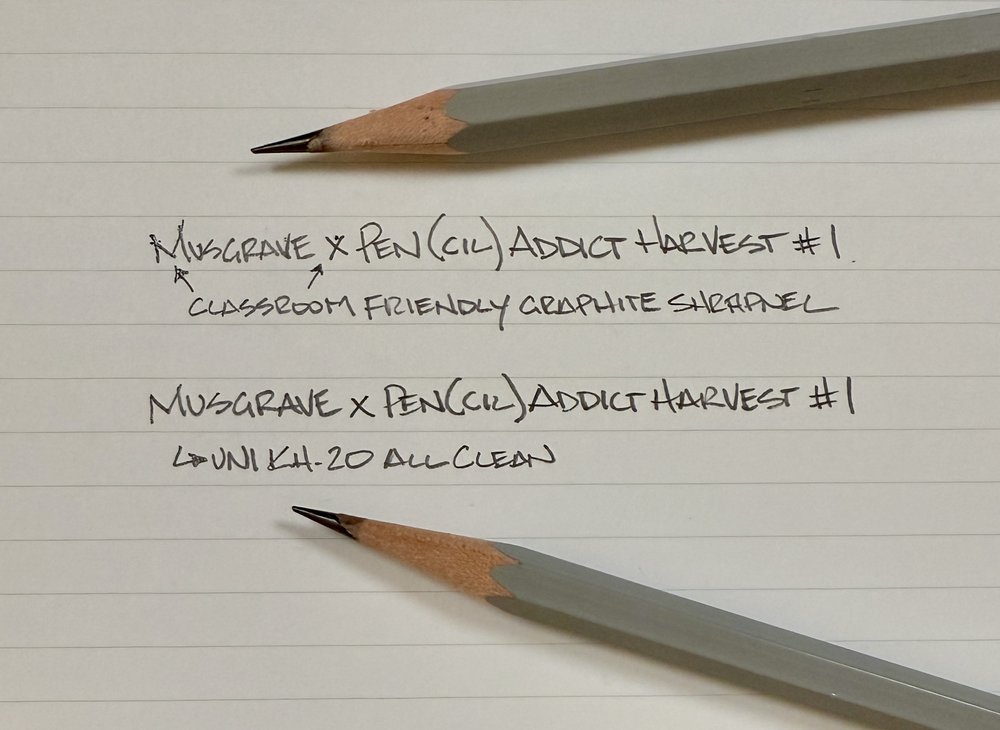 MUSGRAVE X PEN(CIL) ADDICT HARVEST #1
CLASSROOM FRIENDLY GRAPHITE SHRAPNEL
MUSGRAVE X PEN(CIL) ADDICT HARVEST #1
↳ UNI KH-20 ALL CLEAN